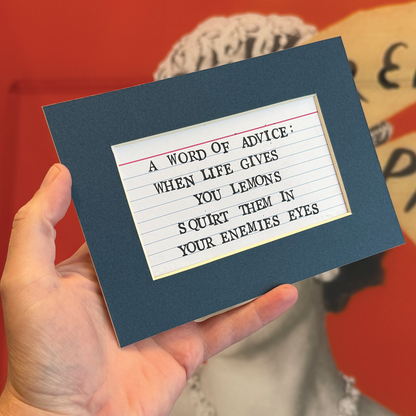 A WORD OF ADVICE:
WHEN LIFE GIVES
YOU LEMONS
SQUIRT THEM IN
YOUR ENEMIES EYES